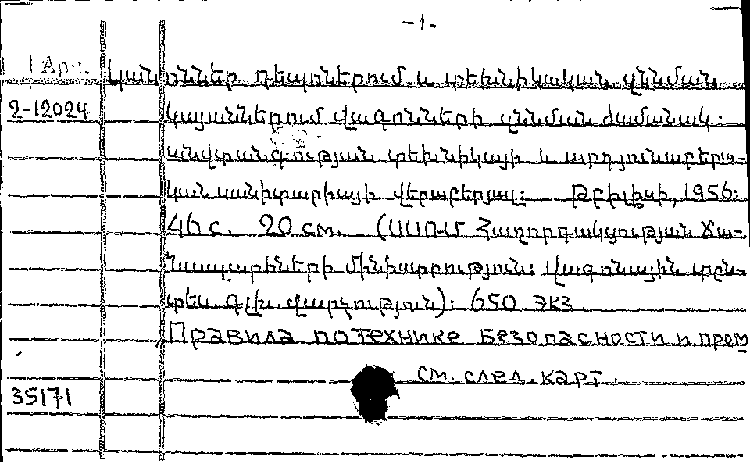 -1-
1 Ар.
Կանոններ դեպոներում և տեխնիկական զննման
2-12024
կայաններում վագոնների զննման ժամանակ:
անվտանգության տեխնիկայի և արդյունաբերա-
կան սանիտարիայի վերաբերյալ: Թբիլիսի, 1956:
46 с. 20 см. (ՍՍՌՄ Հաղորդակցության Ճա-
նապարհների մինիստրություն: Վագոնային տըն-
տես. գլխ. վարչություն): 650 экз
Правила по технике безопасности и пром
см. след. карт
35171